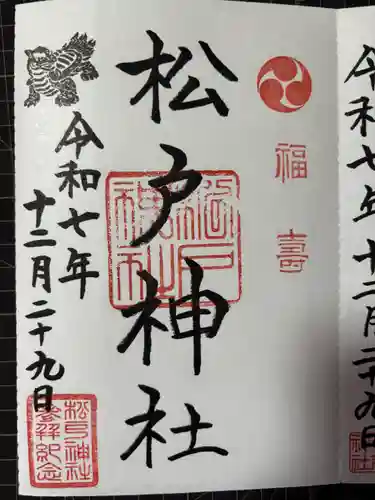 令和七年十二月二十九日
福壽
松戸神社
松戸神社
令和七年
十二月二十九日
松戸神社
参拝紀念